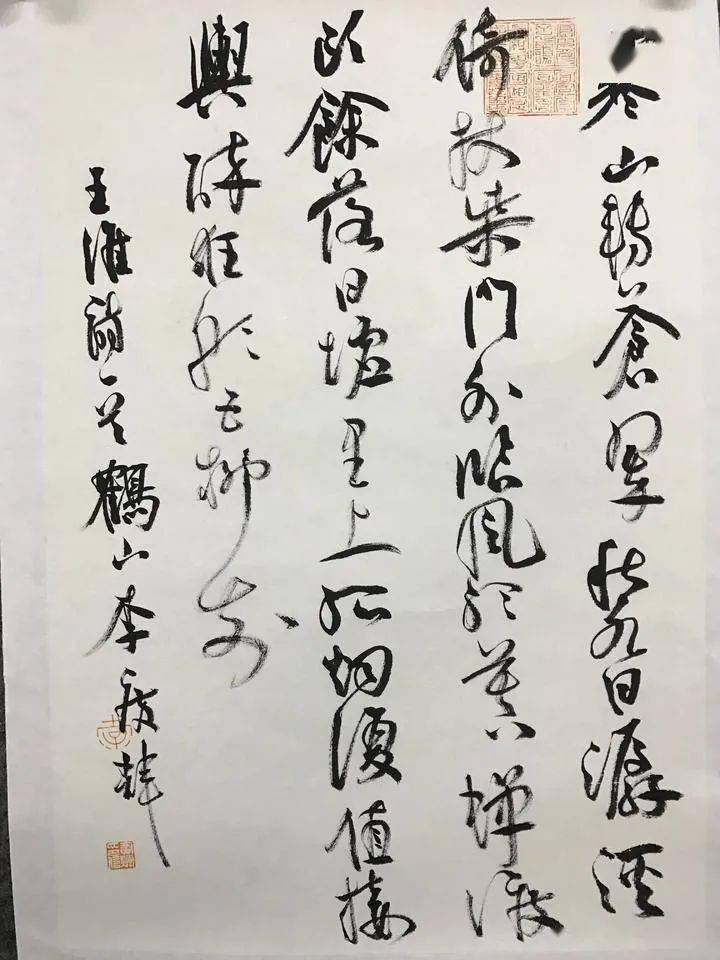 寒山轉蒼翠秋水日潺湲
倚杖柴門外臨風聽暮蟬渡
頭餘落日墟里上孤烟復值接
輿醉狂歌五柳前
王維詩一首鶴山李